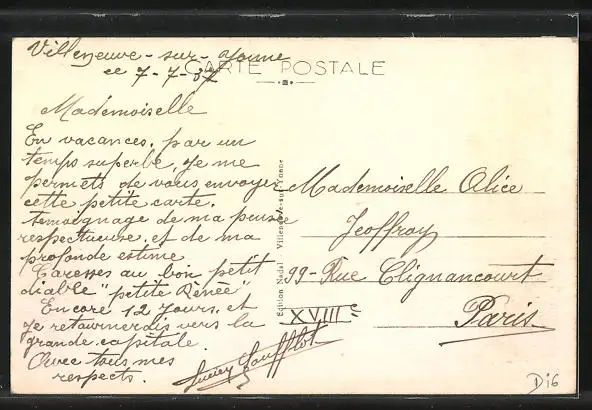 Villeneuve-sur-Yonne
ce 7-7-37
CARTE POSTALE
Mademoiselle
En vacances, par un
temps superbe, je me
permets de vous envoyer
cette petite carte,
temoignage de ma pensée
respectueuse, et de ma
profonde estime.
Caresses au bon petit
diable "petite Renée"
Encore 12 jours, et
je retournerais vers la
grande capitale.
Avec tous mes
respects.
Edition Nadal - Villeneuve-sur-Yonne
Mademoiselle Alice
Jeoffroy
99-Rue Clignancourt
XVIII
Paris
D16